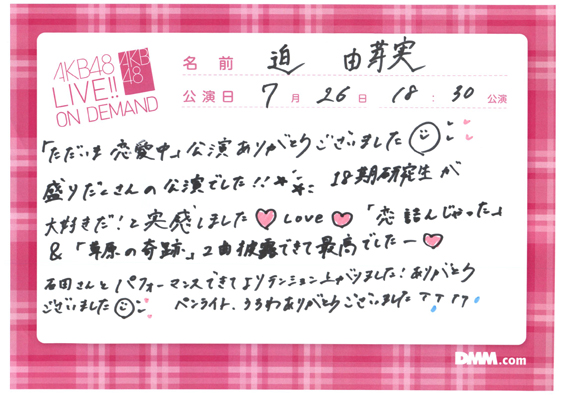 AKB48
LIVE!!
ON DEMAND
AKB
48
名前 迫 由芽実
公演日 7月 26日 18:30 公演
「ただいま 恋愛中」公演ありがとうございました
盛りだくさんの公演でした!! 18期研究生が
大好きだ!と実感しました Love 「恋 詰んじゃった」
&「草原の奇跡」2曲披露できて最高でしたー
石田さんとパフォーマンスできてよりテンション上がりました!ありがとう
ございました ペンライト、うちわありがとうございました
DMM.com